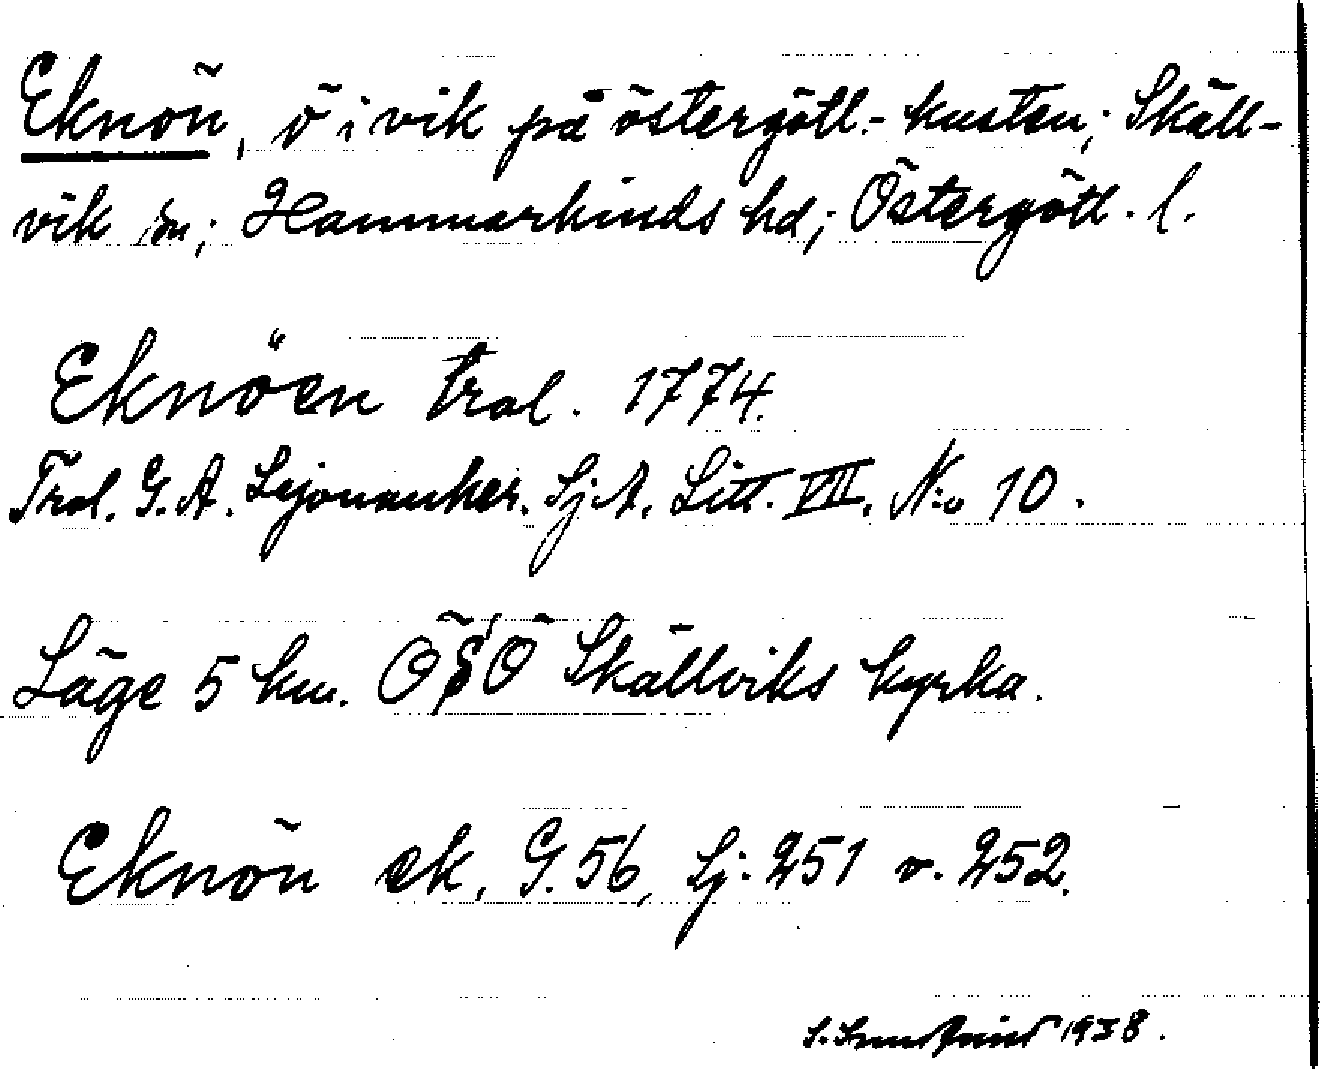 Eknön, ö i vik på östergötl.-kusten; Skäll-
vik sn; Hammarkinds hd; Östergötl. l.
Eknöen tral. 1774.
Tral. G. A. Lejonanker. Sj. A. Litt. VII. N:o 10.
Läge 5 km. OSO Skällviks kyrka.
Eknön ek, G. 56, Sj. 251 o. 252.
S. 1938.